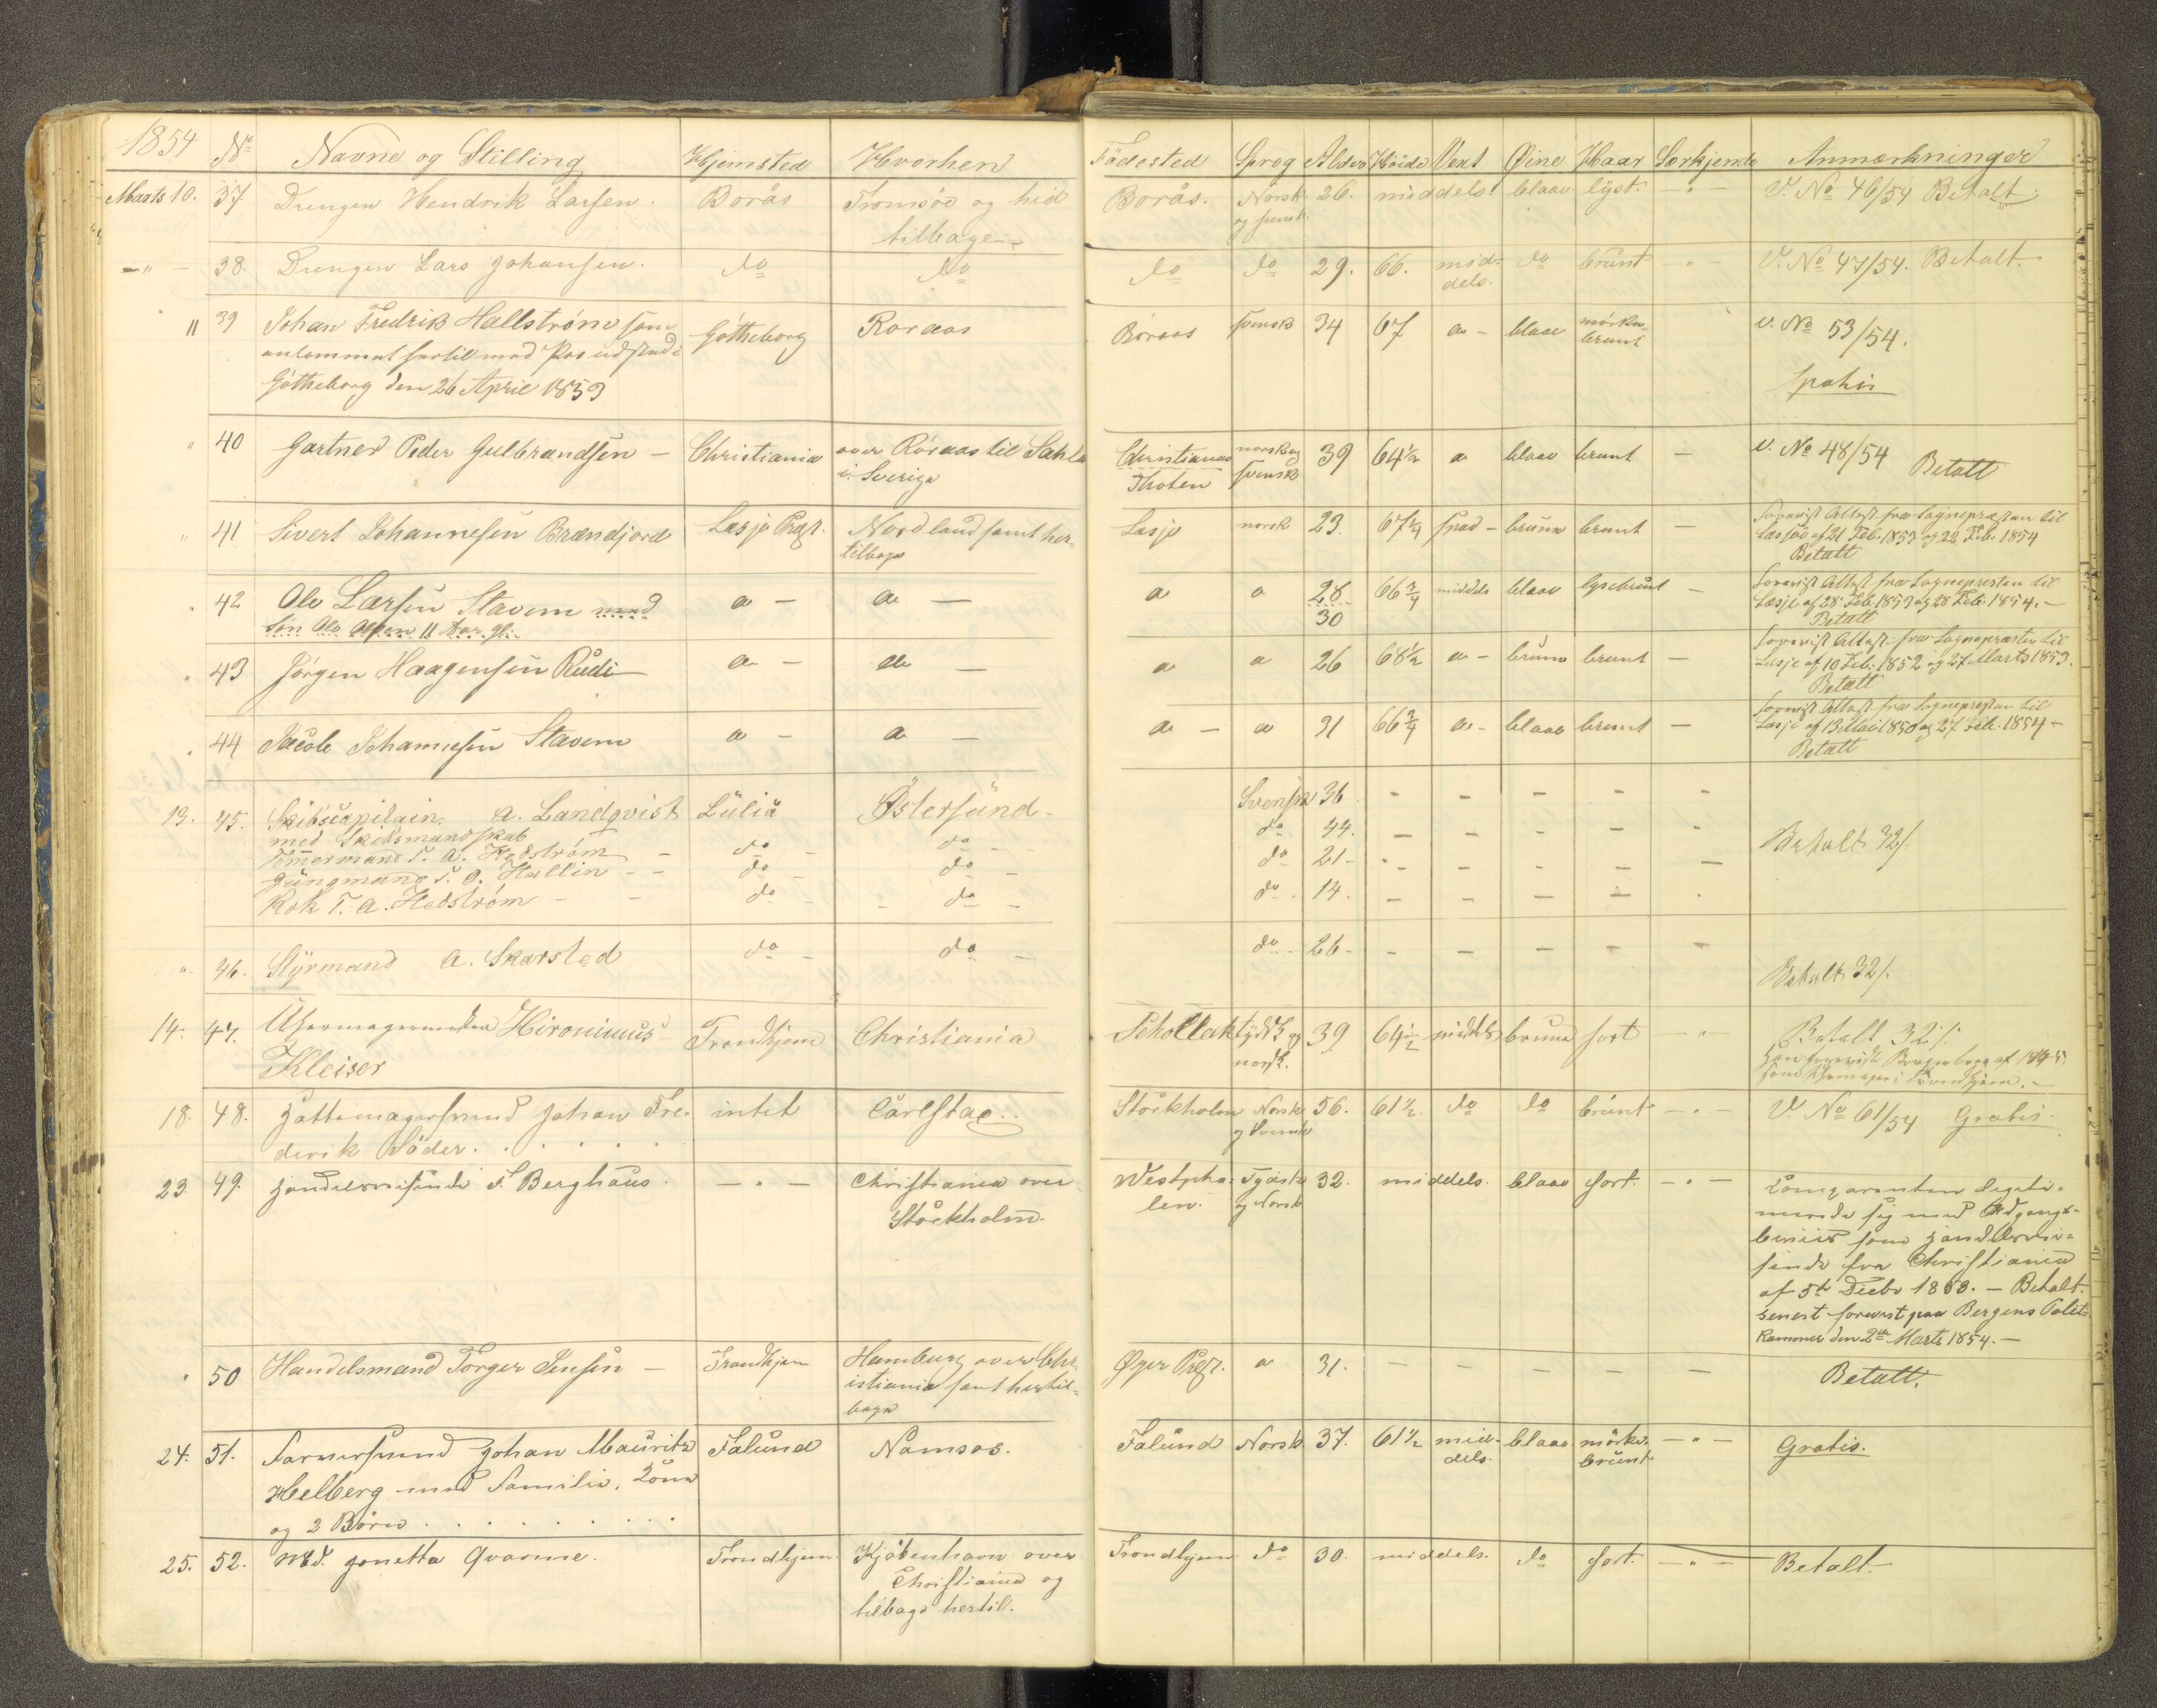 1854 No Navne og Stilling Hjemsted Hvorhen Födested Sprog Alder Höide Vext Øine Haar Særkjende Anmærkninger
Marts 10. 37 Drengen Hendrik Larsen. Borås Tromsöe og hid Borås. Norsk 26. middels. blaae lyst. - " - V. No 46/54 Betalt
tilbage. og svensk.
- " - 38. Drengen Lars Johansen. do do do do 29. 66. mid- do brunt " V. No 47/54. Betalt.
dels.
" 39 Johan Fredrik Hallström som Götheborg Roraas Böraas svensk 34 67 a - blaae mörke- V. No 53/54.
ankommet hertil med Pas udstæd i brunt
Götheborg den 26 April 1853 gratis
" 40 Gartner Peder Gulbrandsen - Christiania over Röraas til Sahla Christiania norsk og 39 64½ a blaae brunt - V. No 48/54 Betalt
i Sverige Thoten svensk
" 41 Sivert Johannesen Brændjord Lesje Prgj. Nordland samt her- Lesje norsk 23. 67¼ spæd - brune brunt - Forevist Attest fra Sognepræsten til
tilbage Lessöe af 21 Feb. 1853 og 22 Feb. 1854
Betalt
" 42 Ole Larsen Stavem med a - a - a a 28 66¾ middels blaae lysebrunt - Forevist Attest fra Sognepresten til
Sön Ole Olsen 11 Aar gl. 30 Lesje af 28 Feb. 1853 og 28 Feb. 1854. -
Betalt
" 43 Jörgen Haagensen Rudi - a - a - a a 26 68½ a - brune brunt - Forevist Attest fra Sognepræsten til
Lesje af 10 Feb. 1852 og 27 Marts 1853.
Betalt
" 44 Jacob Johannesen Stavem a - a - a - a 31 66¾ a - blaae brunt - Forevist Attest fra Sognepresten til
Lesje af 13 Mai 1850 og 27 Feb. 1854 -
Betalt
13. 45. Skibscapitain A. Landqvist Luliå Østersund - Svensk 36 - - - - -
med Skibsmandskab
Tömmermand T. A. Hedström - do - do - do 44. - - - - - Betalt 32/.
Jungmand T. O. Hallin - - do - do - do 21 - - - - - -
Kok T. A. Hedström - - do - do - do. 14. - - - - -
" 46. Styrmand A. Skarsted do - do - do 26 - - - - - - Betalt 32/.
14. 47. Uhrmagermester Hironimus Trondhjem Christiania Schollak tydsk og 39 64½ middels brune sort - " - Betalt 32/.
Kleiser norsk. Han foreviste Borgerbrev af
som Uhrmager i Trondhjem. -
18. 48. Hattemagersvend Johan Fre- intet Carlstad. Stockholm Norsk 56. 61½. do do brunt - " - V. No 61/54 Gratis
derik Söder. og Svensk
23. 49. Handelsreisende F. Berghaus. - " - Christiania over Westpha- Tydsk 32. middels. blaae sort. - " - Comparenten legiti-
Stockholm. len. og Norsk merede sig med Adgangs-
beviis som Handelsrei-
sende fra Christiania
af 5te Decbr 1853. - Betalt.
senest forevist paa Bergens Politi-
kammer den 2den Marts 1854. -
" 50 Handelsmand Torger Jensen - Trondhjem Hamburg over Chr- Øyer Prgj. a 31. - - - - - Betalt.
istiania samt hertil-
bage
24. 51. Farversvend Johan Mauritz Falund Namsos. Falund Norsk 37. 61½ mid- blaae. mörke- - " - Gratis.
Helberg med Familie, Kone dels. brunt
og 2 Börn . . . . . . . .
25. 52. Md. Jonetta Qvarme. Trondhjem Kjöbenhavn over Trondhjem do 30. middels. do sort. - " - Betalt.
Christiania og
tilbage hertil.